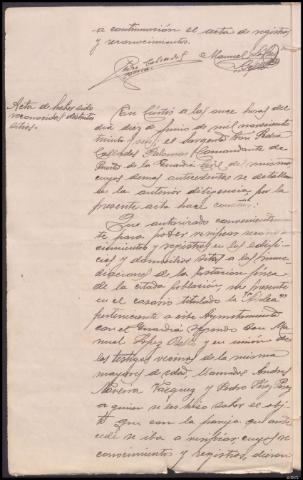 a continuación el acta de registro
y reconocimiento.
Pedro Callados
Manuel López
Acta de haber sido
reconocidos distintos
sitios.
En a las once horas del
día diez de Junio de mil novecientos
treinta y seis, el Sargento Don Pedro
Palomar, Comandante de
Puesto de la Guardia Civil del mismo
cuyos demás antecedentes se detallan
en la anterior diligencia, por la
presente acta hace constar:
Que autorizado
para poder verificar reco
nocimientos y registros en los edifi
cios y domicilios sitos a los
de la
de la citada población, me presenté
en el caserío titulado la "Aldea"
perteneciente a este Ayuntamiento
con el Guardia Segundo Don Ma
nuel López y en unión de
los testigos vecinos de la misma
mayores de edad llamados Andrés
Vázquez y Pedro Pérez
a quien se les hizo saber el obje
to que con la que ante
cede se iba a verificar cuyos re
conocimientos y registros, dieron